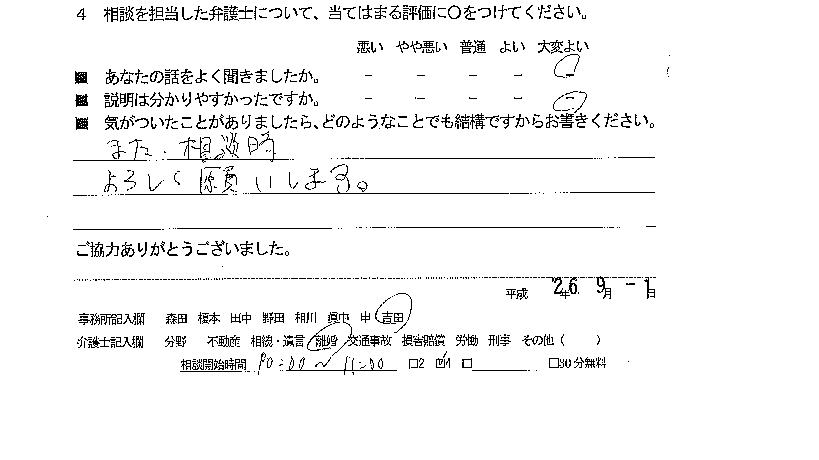 4 相談を担当した弁護士について、当てはまる評価に○をつけてください。
悪い やや悪い 普通 よい 大変よい
■ あなたの話をよく聞きましたか。 － － － － －
■ 説明は分かりやすかったですか。 － － － － －
■ 気がついたことがありましたら、どのようなことでも結構ですからお書きください。
また、相談時
よろしく願いします。
ご協力ありがとうございました。
平成 26年 9月 -1日
事務所記入欄 森田 榎本 田中 野田 相川 眞中 申 吉田
弁護士記入欄 分野 不動産 相続・遺言 離婚 交通事故 損害賠償 労働 刑事 その他（ ）
相談開始時間 10:00～11:00 □2 ☑1 □ □30分無料